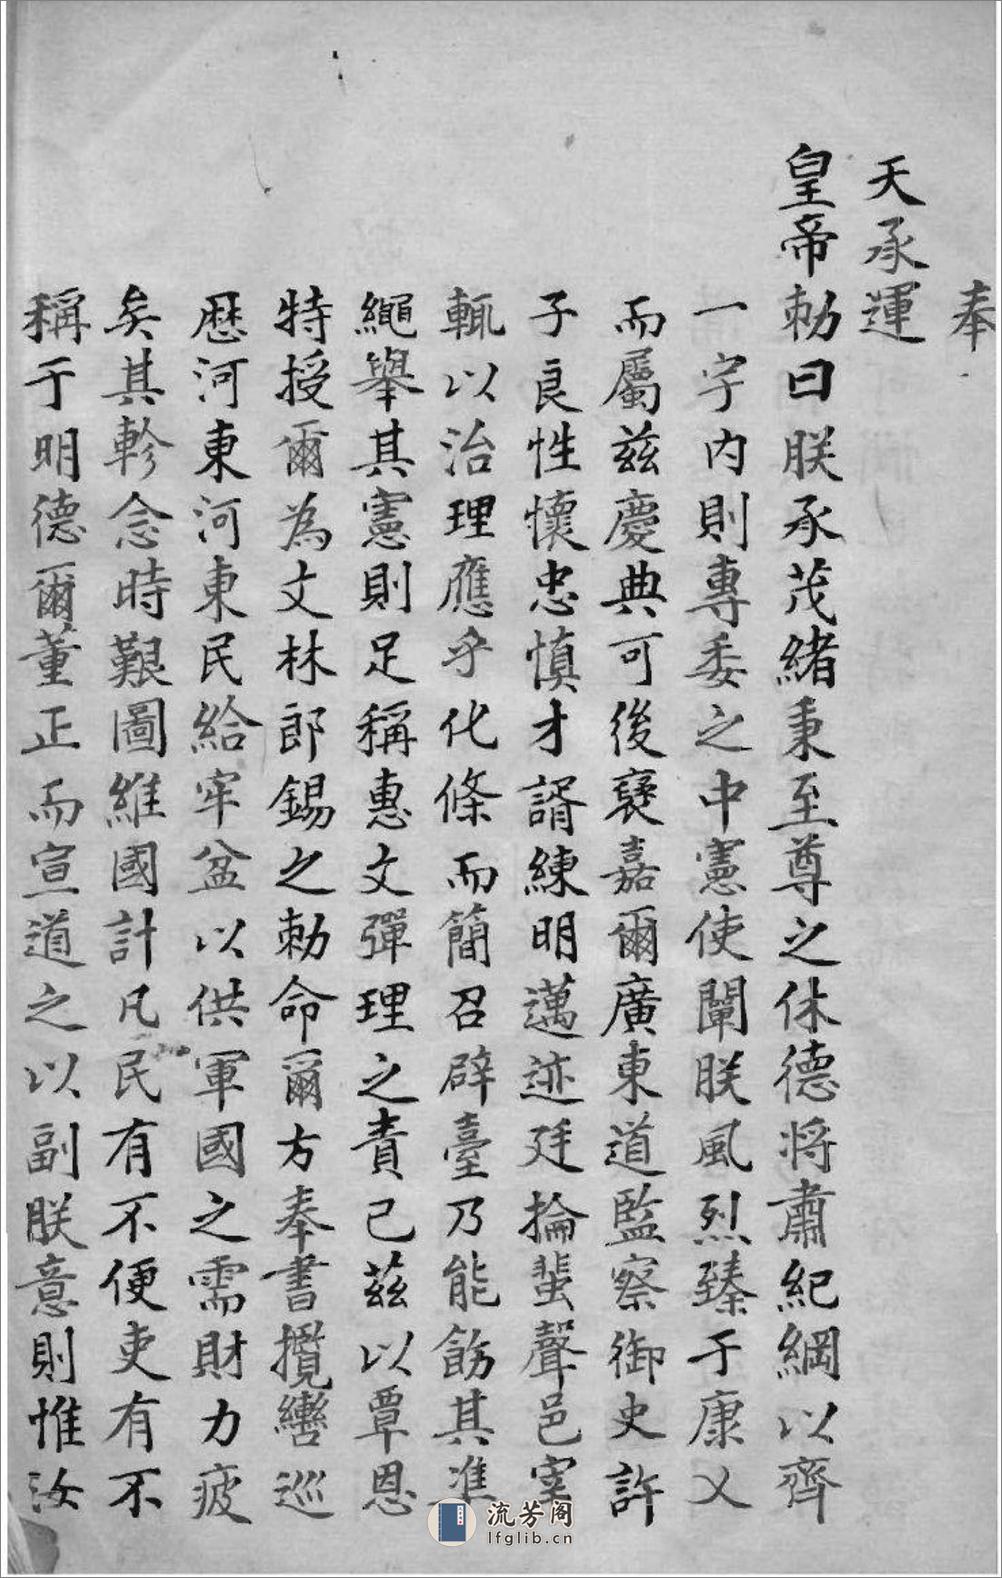 奉
天承運
皇帝勅曰朕承茂緒秉至尊之休德将肅紀綱以齊
一宇内則專委之中憲使闡朕風烈臻于康乂
而屬兹慶典可後襃嘉爾廣東道監察御史許
子良性懷忠慎才諝練明邁迹廷掄蜚聲邑宰
輒以治理應乎化條而簡召辟臺乃能飭其準
繩舉其憲則足稱惠文彈理之責已兹以覃恩
特授爾為文林郎錫之勅命爾方奉書攬轡巡
歷河東河東民給牢盆以供軍國之需財力疲
矣其軫念時艱圖維國計凡民有不便吏有不
稱于明德爾董正而宣道之以副朕意則惟汝
流芳阁
lfglib.cn